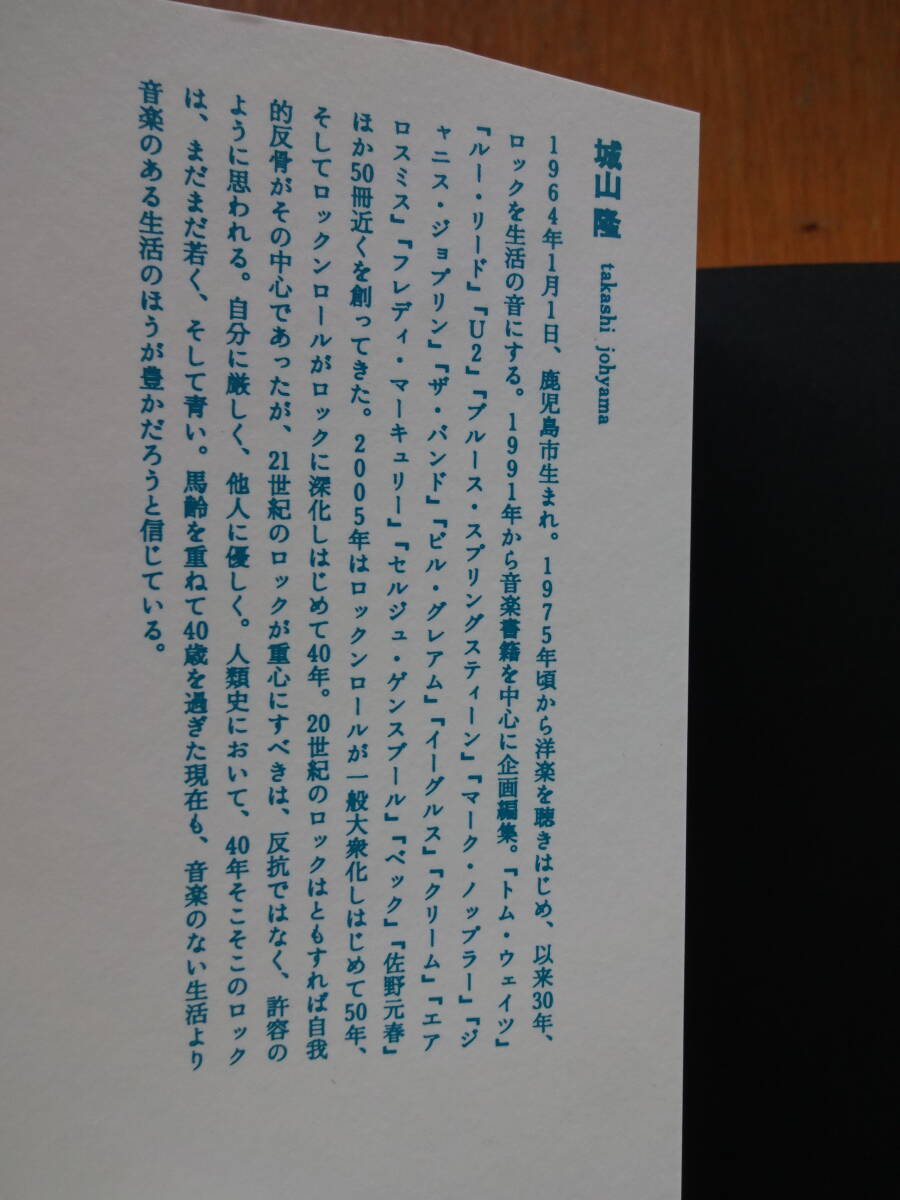 城山 隆 takashi johyama
1964年1月1日、鹿児島市生まれ。1975年頃から洋楽を聴きはじめ、以来30年、
ロックを生活の音にする。1991年から音楽書籍を中心に企画編集。『トム・ウェイツ』
『ルー・リード』『U2』『ブルース・スプリングスティーン』『マーク・ノップラー』『ジ
ャニス・ジョプリン』『ザ・バンド』『ビル・グレアム』『イーグルス』『クリーム』『エア
ロスミス』『フレディ・マーキュリー』『セルジュ・ゲンスブール』『ベック』『佐野元春』
ほか50冊近くを創ってきた。2005年はロックンロールが一般大衆化しはじめて50年、
そしてロックンロールがロックに深化しはじめて40年。20世紀のロックはともすれば自我
的反骨がその中心であったが、21世紀のロックが重心にすべきは、反抗ではなく、許容の
ように思われる。自分に厳しく、他人に優しく。人類史において、40年そこそこのロック
は、まだまだ若く、そして青い。馬齢を重ねて40歳を過ぎた現在も、音楽のない生活より
音楽のある生活のほうが豊かだろうと信じている。